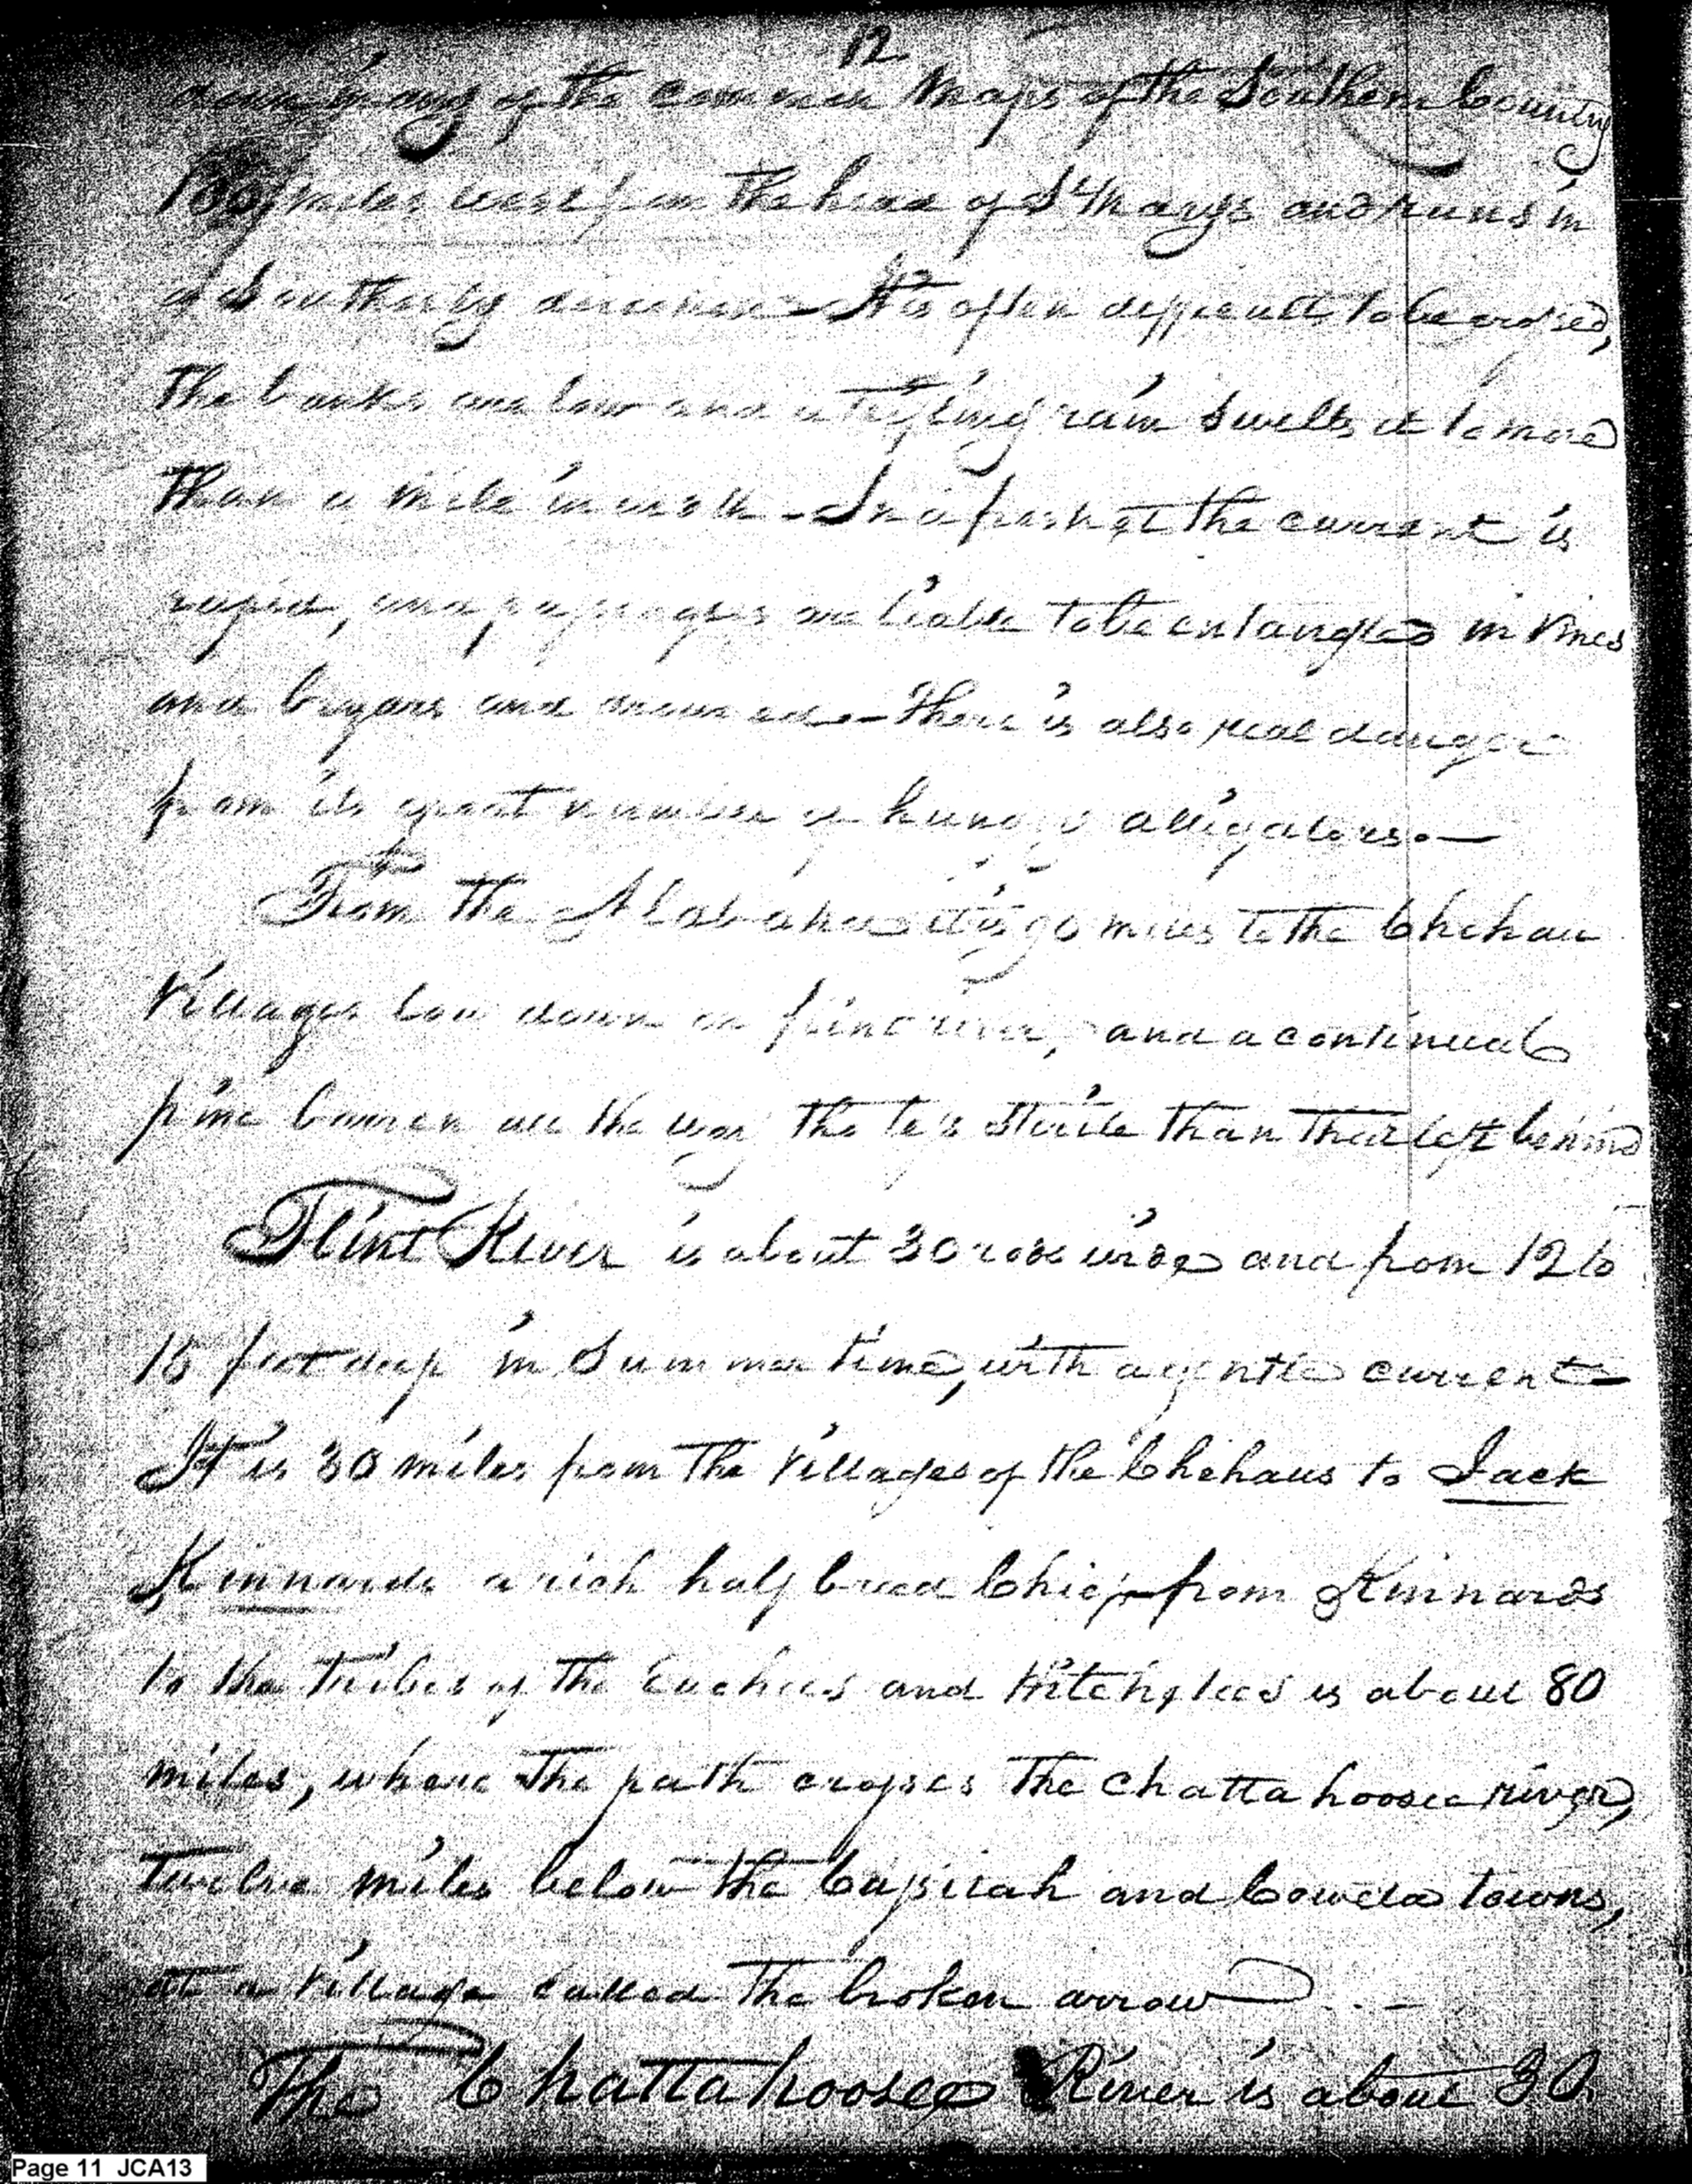 12
down in any of the common Maps of the Southern Country
miles west from the head of St Marys and runs in
a Southerly direction - It is often difficult to be crossed,
The banks are low and a trifling rain swells it to more
than a mile in width - In a freshet the current is
rapid, and passengers are liable to be entangled in vines
and bryars and drowned - There is also real danger
from its great number of hungry alligators. -
From the Alabaha it is 90 miles to the Chehau
Villages low down on flint river, and a continual
pine barren all the way tho less sterile than that left behind
Flint River is about 30 rods wide and from 12 to
15 feet deep in Summer time, with a gentle current
It is 30 miles from the Villages of the Chehaus to Jack
Kinnards a rich half breed Chief - from Kinnards
to the Tribes of the Euchees and Hitchetees is about 80
miles, where the path crosses the Chattahoosee river,
Twelve miles below the Cussitah and Coweta towns,
at a village called the broken arrow
The Chattahoosee River is about 30
Page 11 JCA13